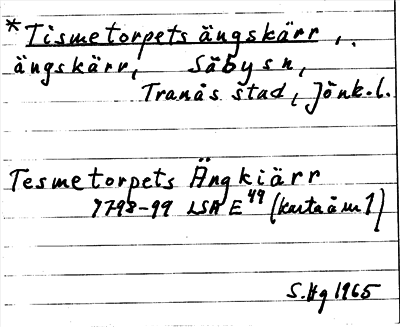 *Tismetorpets ängskärr,.
ängskärr, Säby sn,
Tranås stad, Jönk.l.
Tesmetorpets Ängkiärr
1798-99 LSA E49 (karta ä m 1)
S.Hg 1965